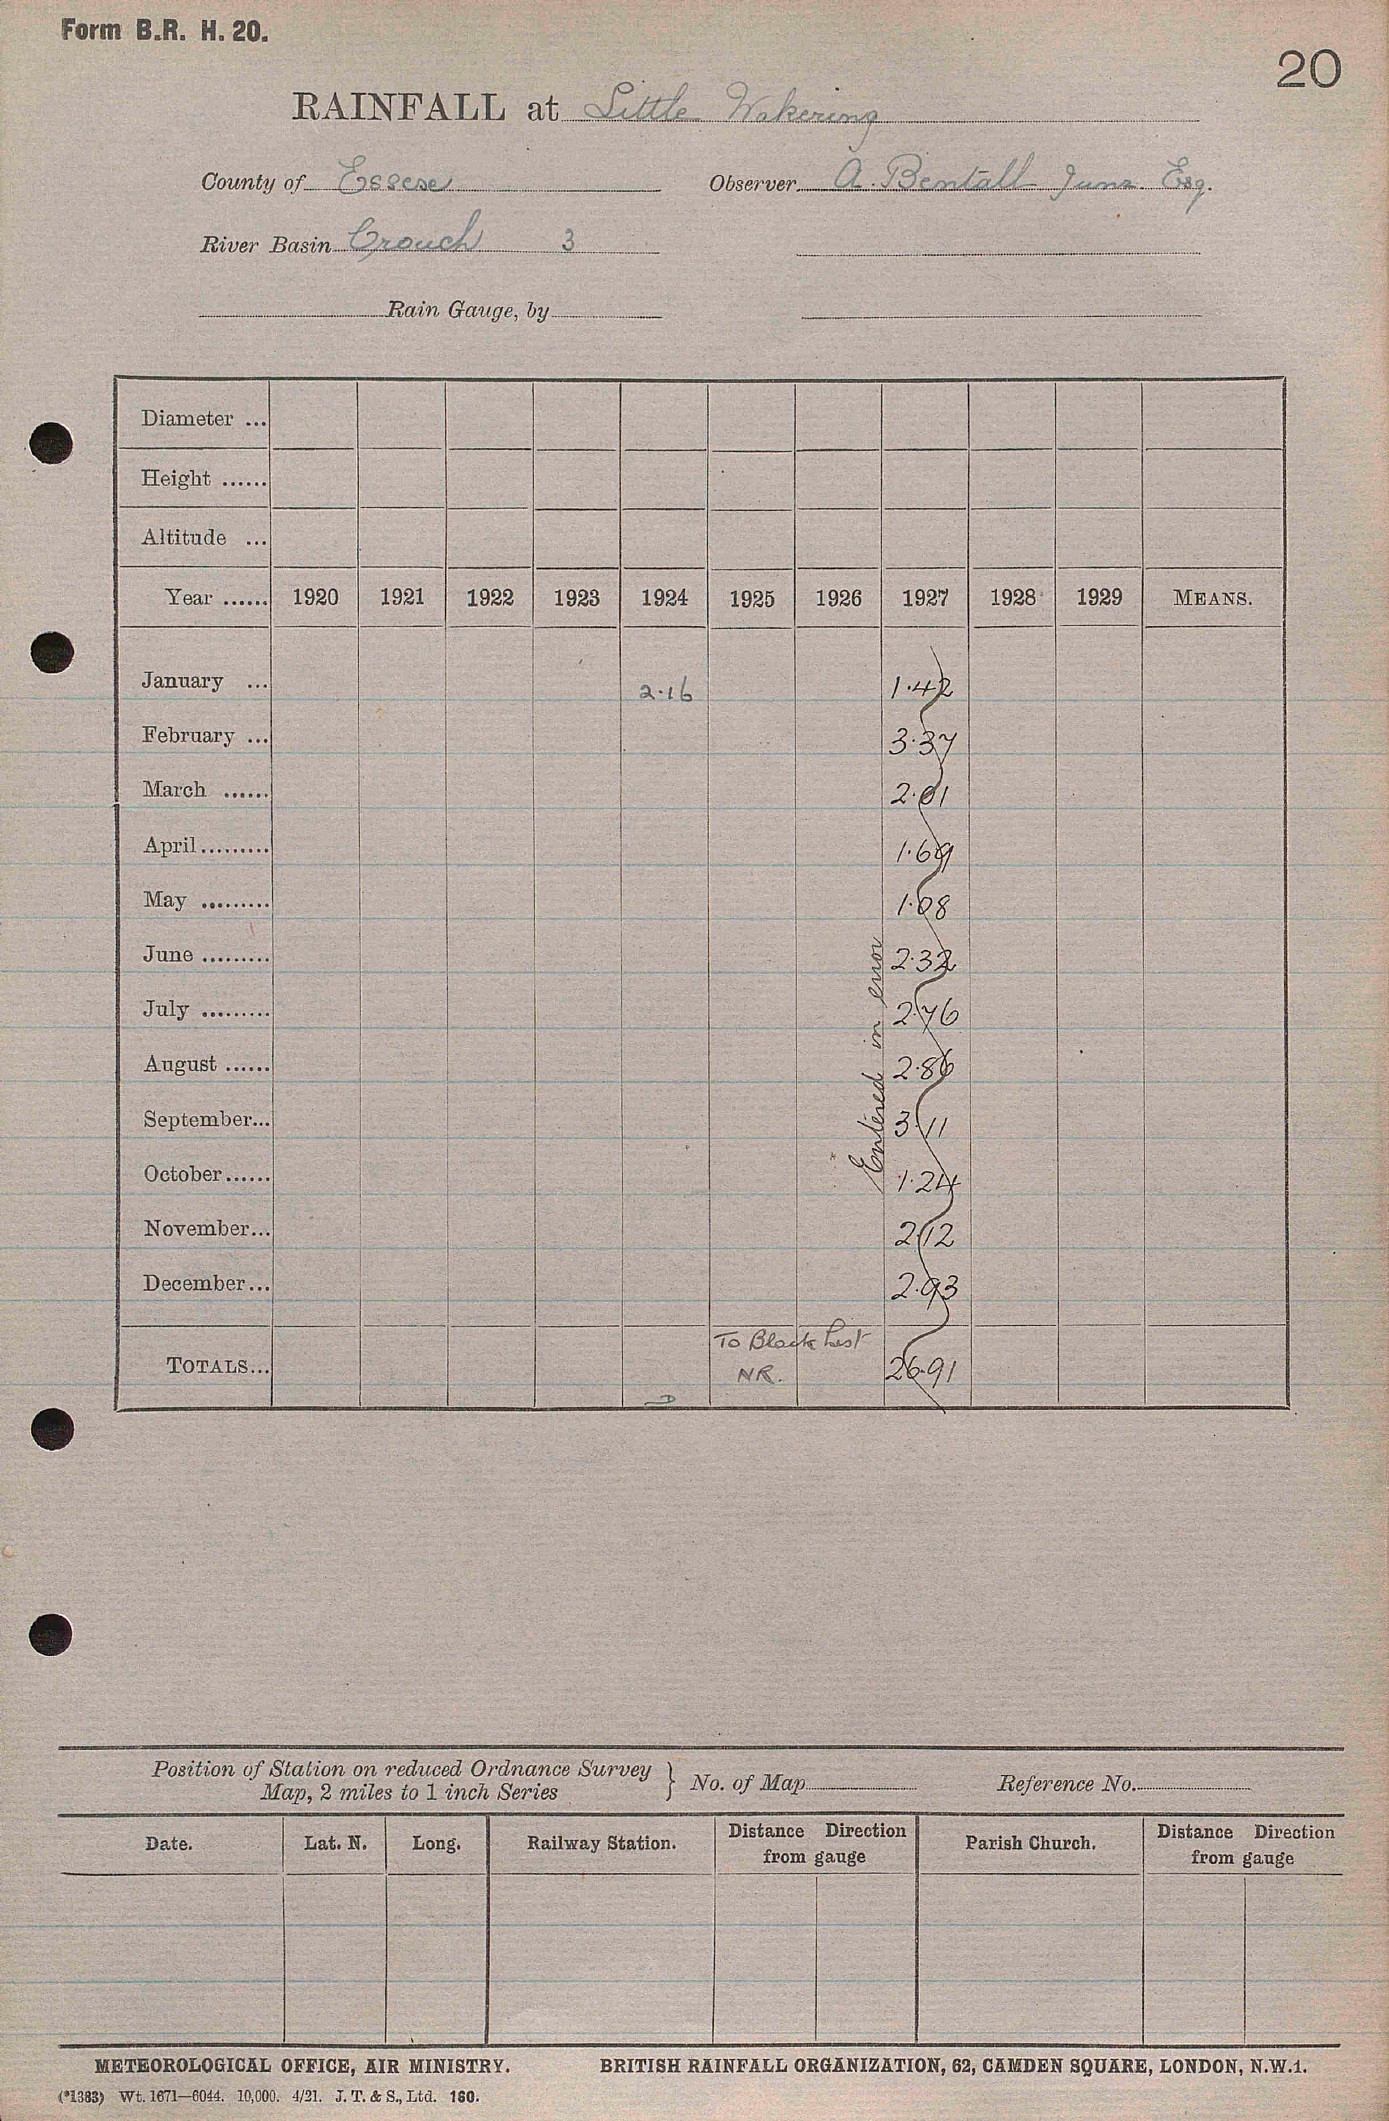 Form B.R. H. 20.
20
RAINFALL at Little Wakering
County of Essex Observer A. Bentall Junr. Esq.
River Basin Crouch 3
Rain Gauge, by
Diameter ...
Height ......
Altitude ...
Year ...... 1920 1921 1922 1923 1924 1925 1926 1927 1928 1929 MEANS.
January ... 2.16 1.42
February ... 3.37
March ...... 2.01
April ......... 1.69
May ......... 1.08
June ......... 2.32
July ......... 2.76
August ...... 2.86
September... 3.11
October ...... 1.24
November... 2.12
December... 2.93
Entered in error
To Black List
TOTALS... NR. 26.91
D
Position of Station on reduced Ordnance Survey
Map, 2 miles to 1 inch Series } No. of Map Reference No.
Date. Lat. N. Long. Railway Station. Distance Direction from gauge Parish Church. Distance Direction from gauge
METEOROLOGICAL OFFICE, AIR MINISTRY. BRITISH RAINFALL ORGANIZATION, 62, CAMDEN SQUARE, LONDON, N.W.1.
(*1383) Wt. 1671—6044. 10,000. 4/21. J. T. & S., Ltd. 160.